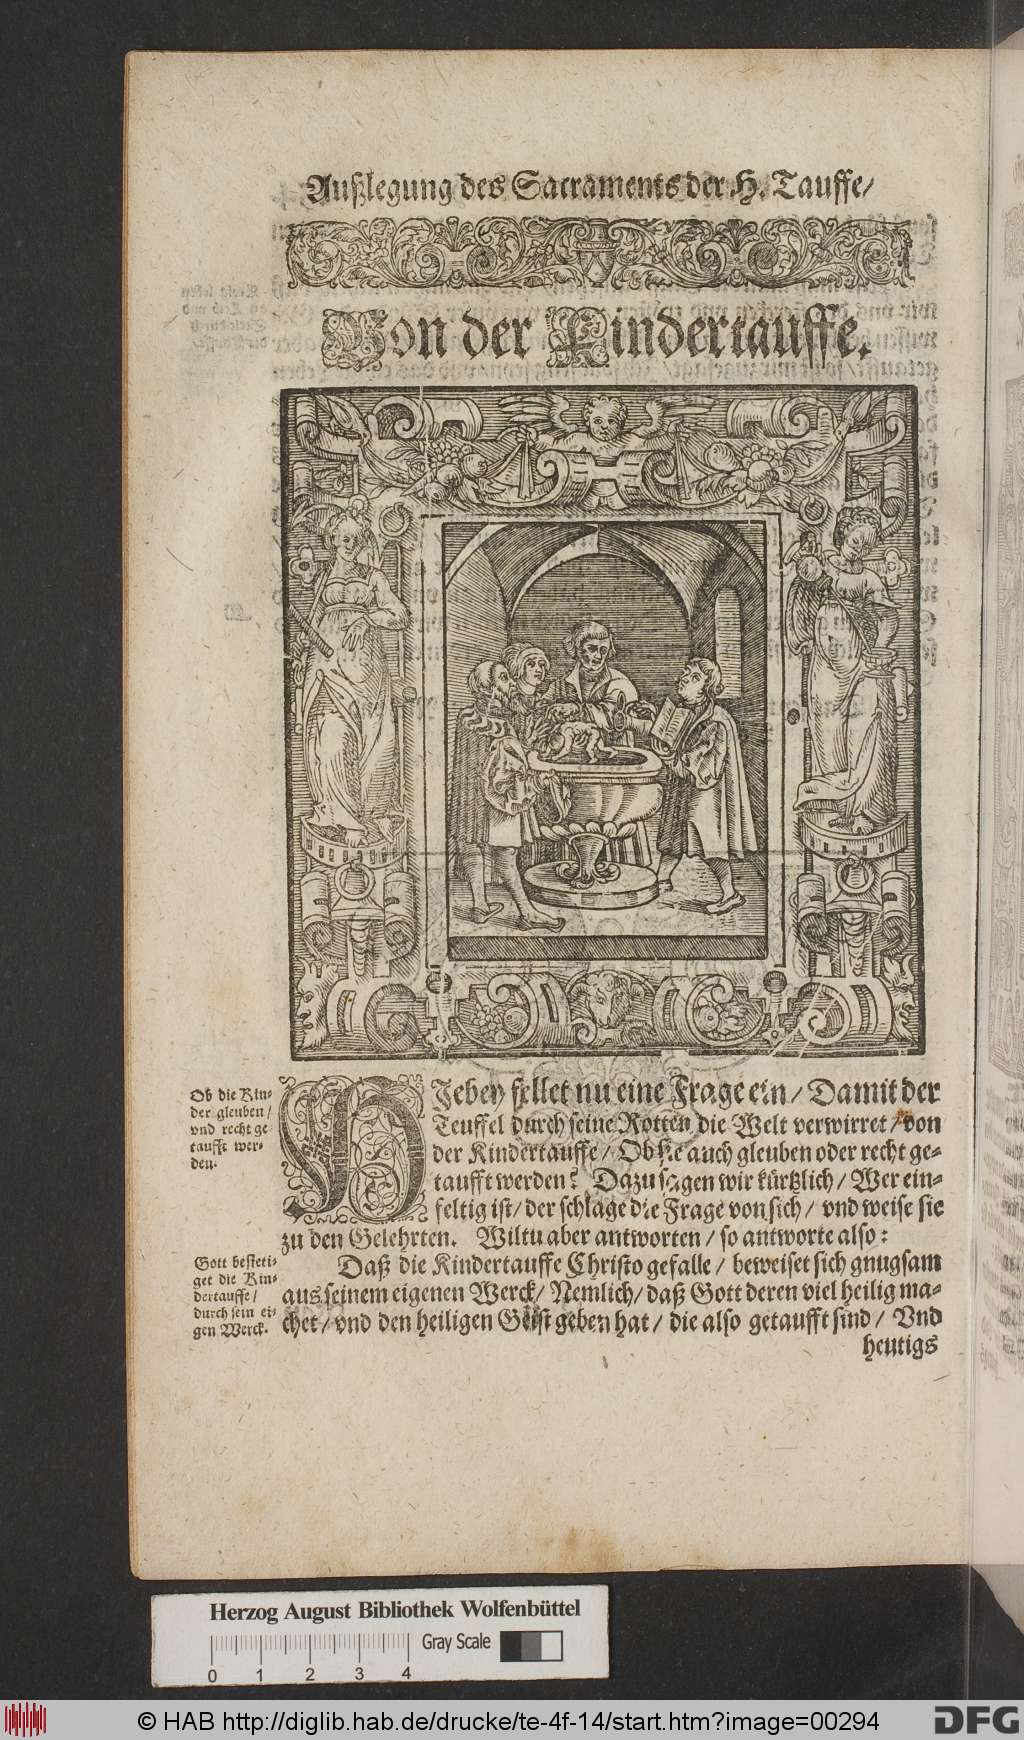 Außlegung des Sacraments der H. Tauffe/
Von der Kindertauffe.
Ob die Kin-
der gleuben/
vnd recht ge-
taufft wer-
den.
HJebey fellet nu eine Frage ein/ Damit der
Teuffel durch seine Rotten die Welt verwirret/ von
der Kindertauffe/ Ob sie auch gleuben oder recht ge-
taufft werden? Dazu sagen wir kürtzlich/ Wer ein-
feltig ist/ der schlage die Frage von sich/ vnd weise sie
zu den Gelehrten. Wiltu aber antworten/ so antworte also:
Gott besteti-
get die Kin-
dertauffe/
durch sein ei-
gen Werck.
Daß die Kindertauffe Christo gefalle/ beweiset sich gnugsam
aus seinem eigenen Werck/ Nemlich/ daß Gott deren viel heilig ma-
chet/ vnd den heiligen Geist geben hat/ die also getaufft sind/ Vnd
heutigs
Herzog August Bibliothek Wolfenbüttel
Gray Scale
0 1 2 3 4
© HAB http://diglib.hab.de/drucke/te-4f-14/start.htm?image=00294
DFG